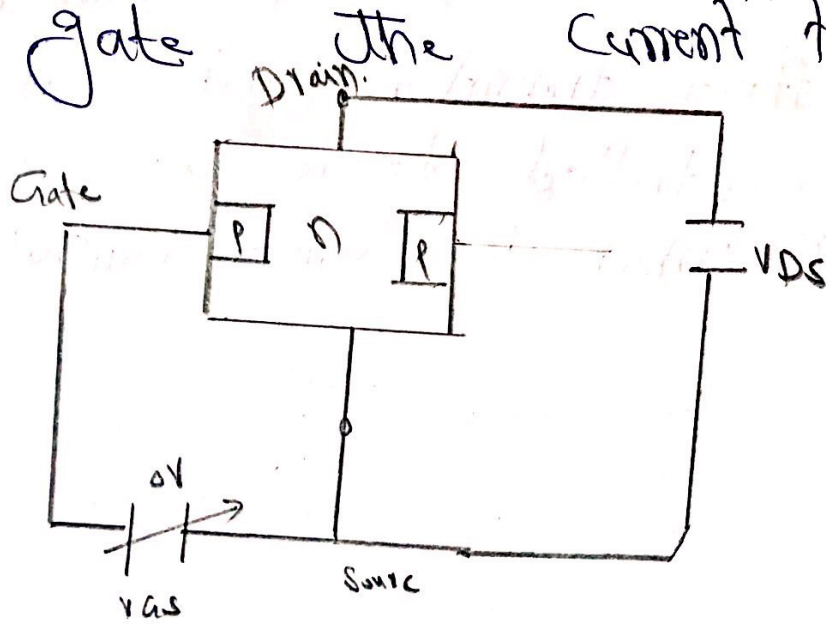 gate the current
Drain.
Gate
P n P
VDS
0V
VGS
Sourc